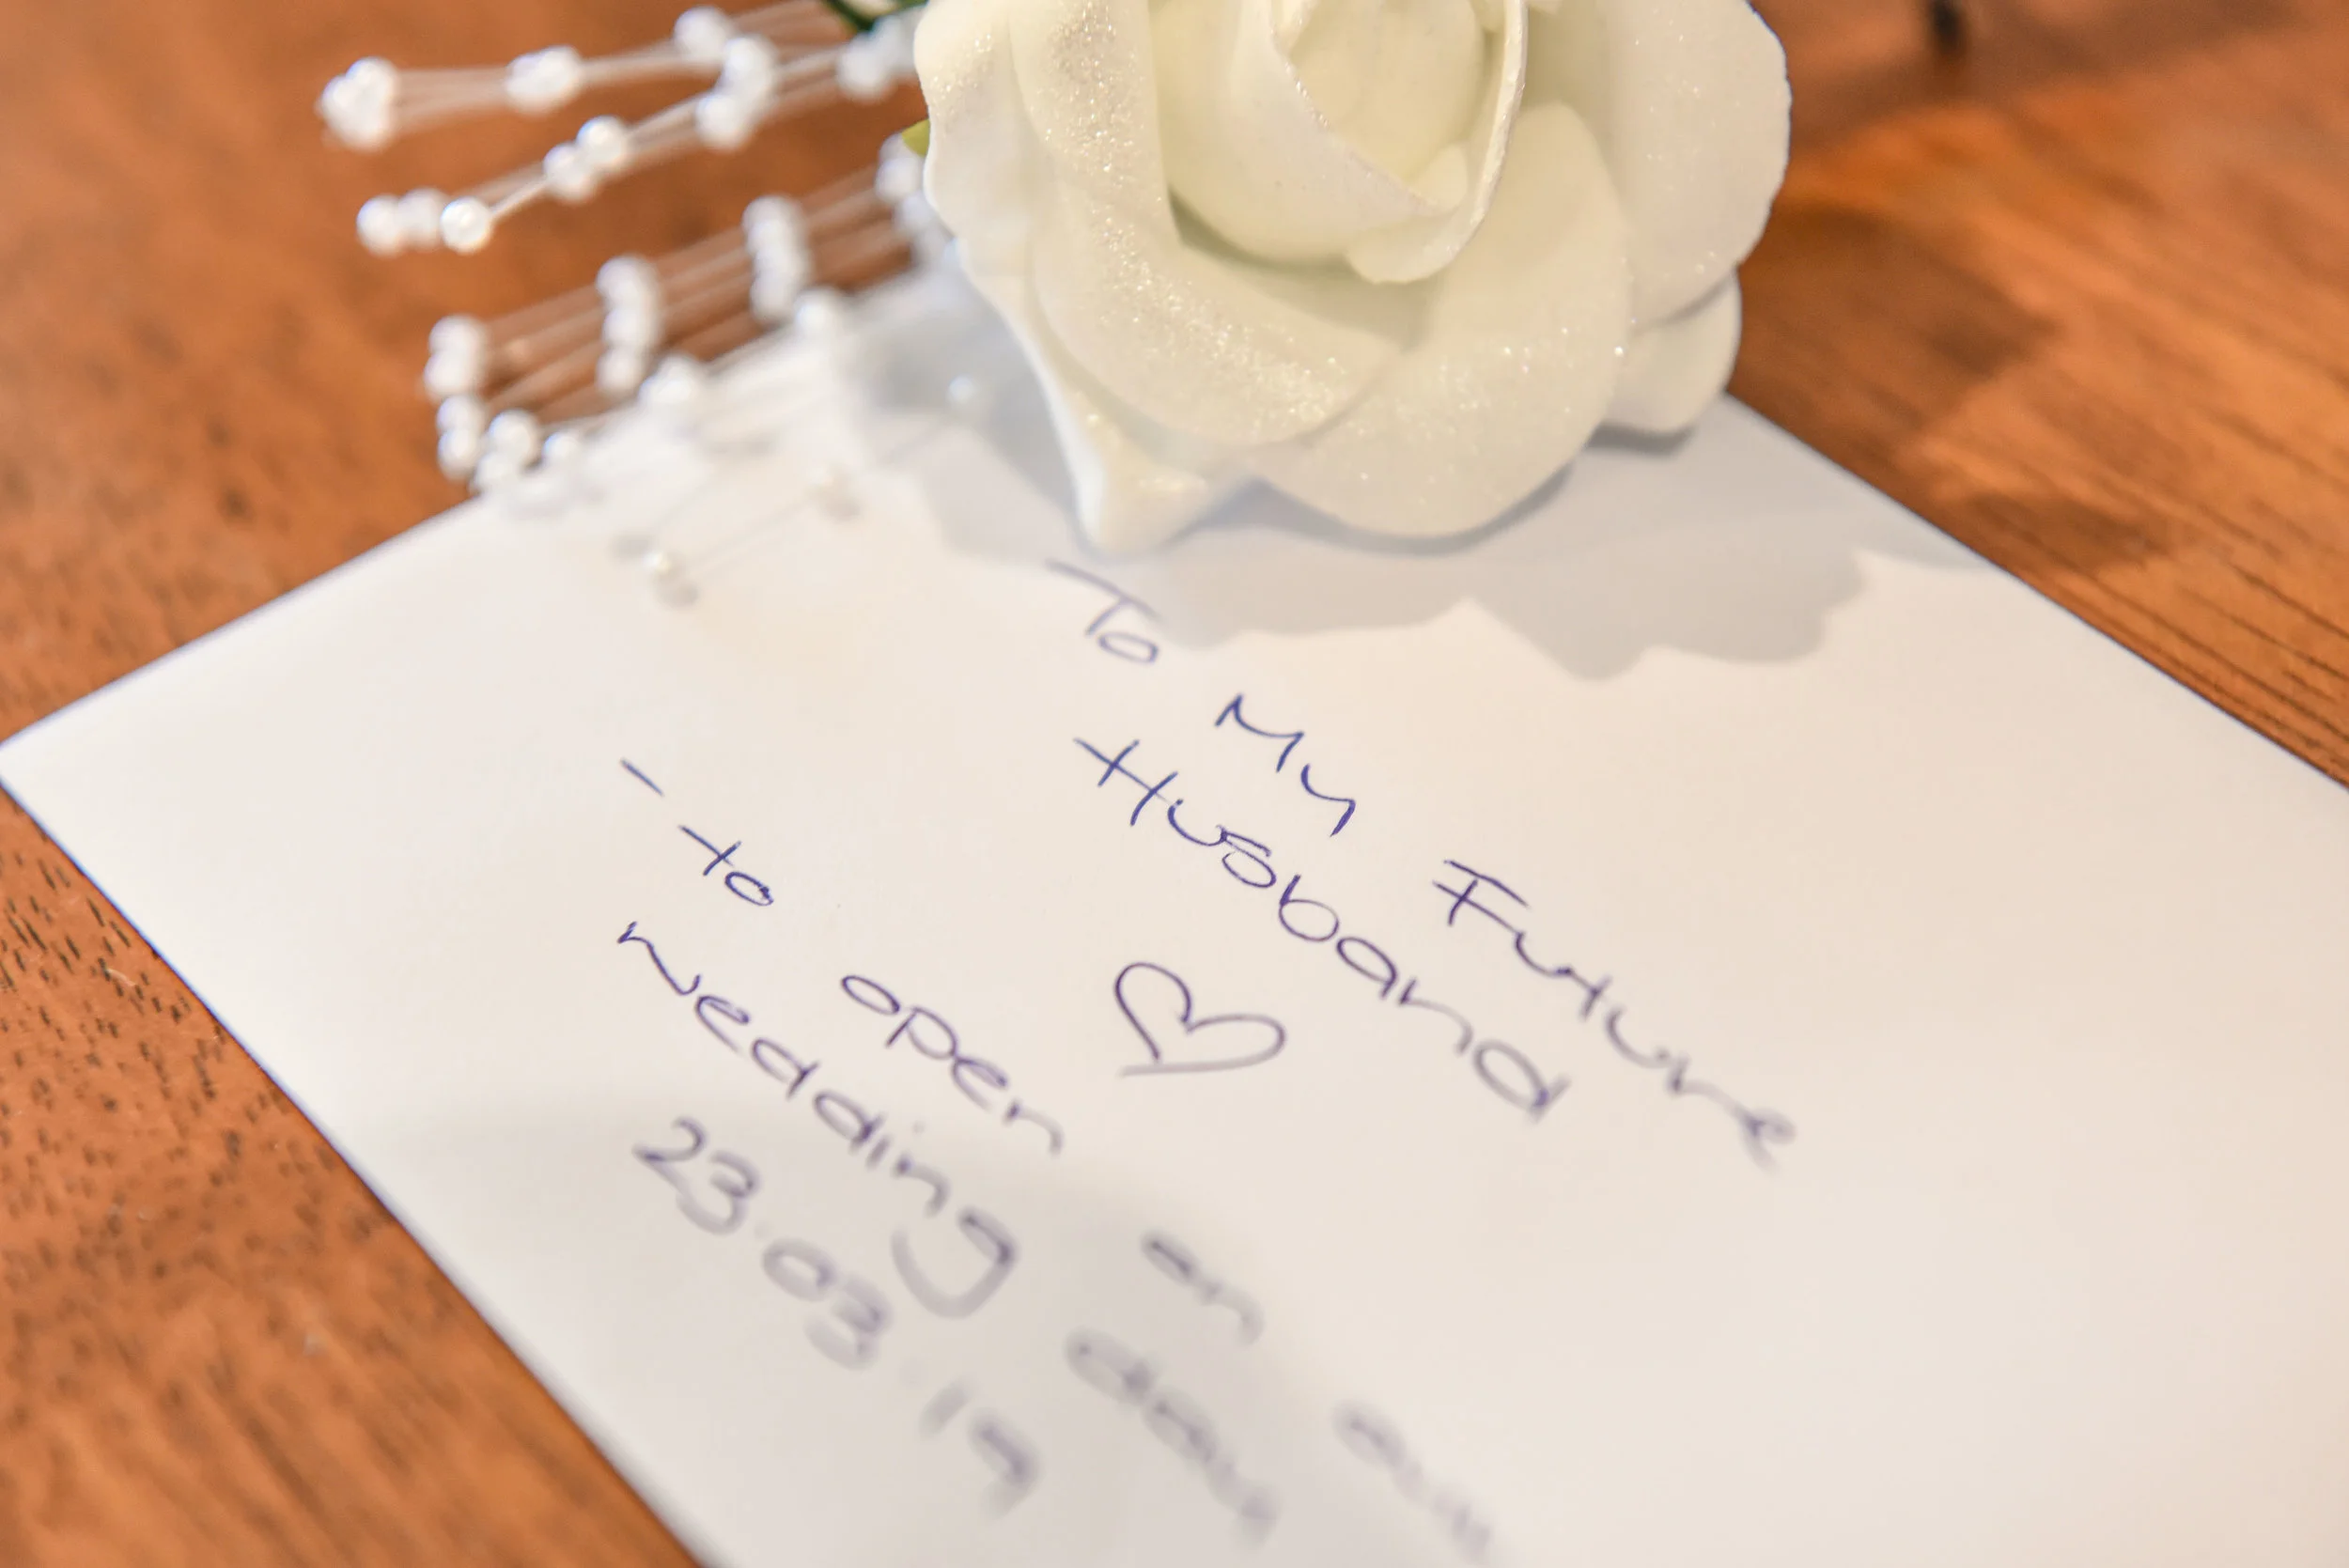 To My Future
Husband
♡
- to open on our
wedding day
23.03.19